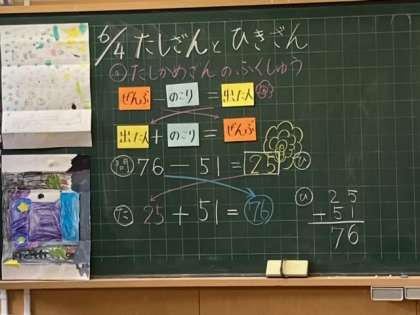 6/4 たしざんとひきざん
たしかめざんのふくしゅう
ぜんぶ － のこり ＝ 出た人
出た人 ＋ のこり ＝ ぜんぶ
76 － 51 ＝ 25 ひ
た 25 ＋ 51 ＝ 76
ひ
25
+ 51
76